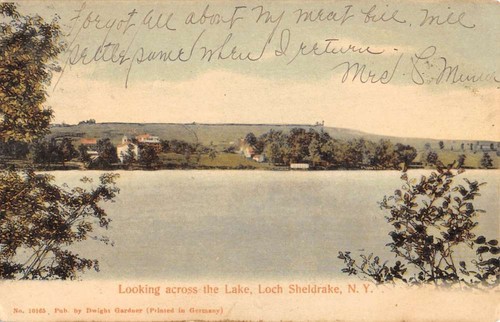 Forgot all about my meat bill, will
settle same when I return -
Mrs
Looking across the Lake, Loch Sheldrake, N. Y.
No. 10165 Pub. by Dwight Gardner (Printed in Germany)